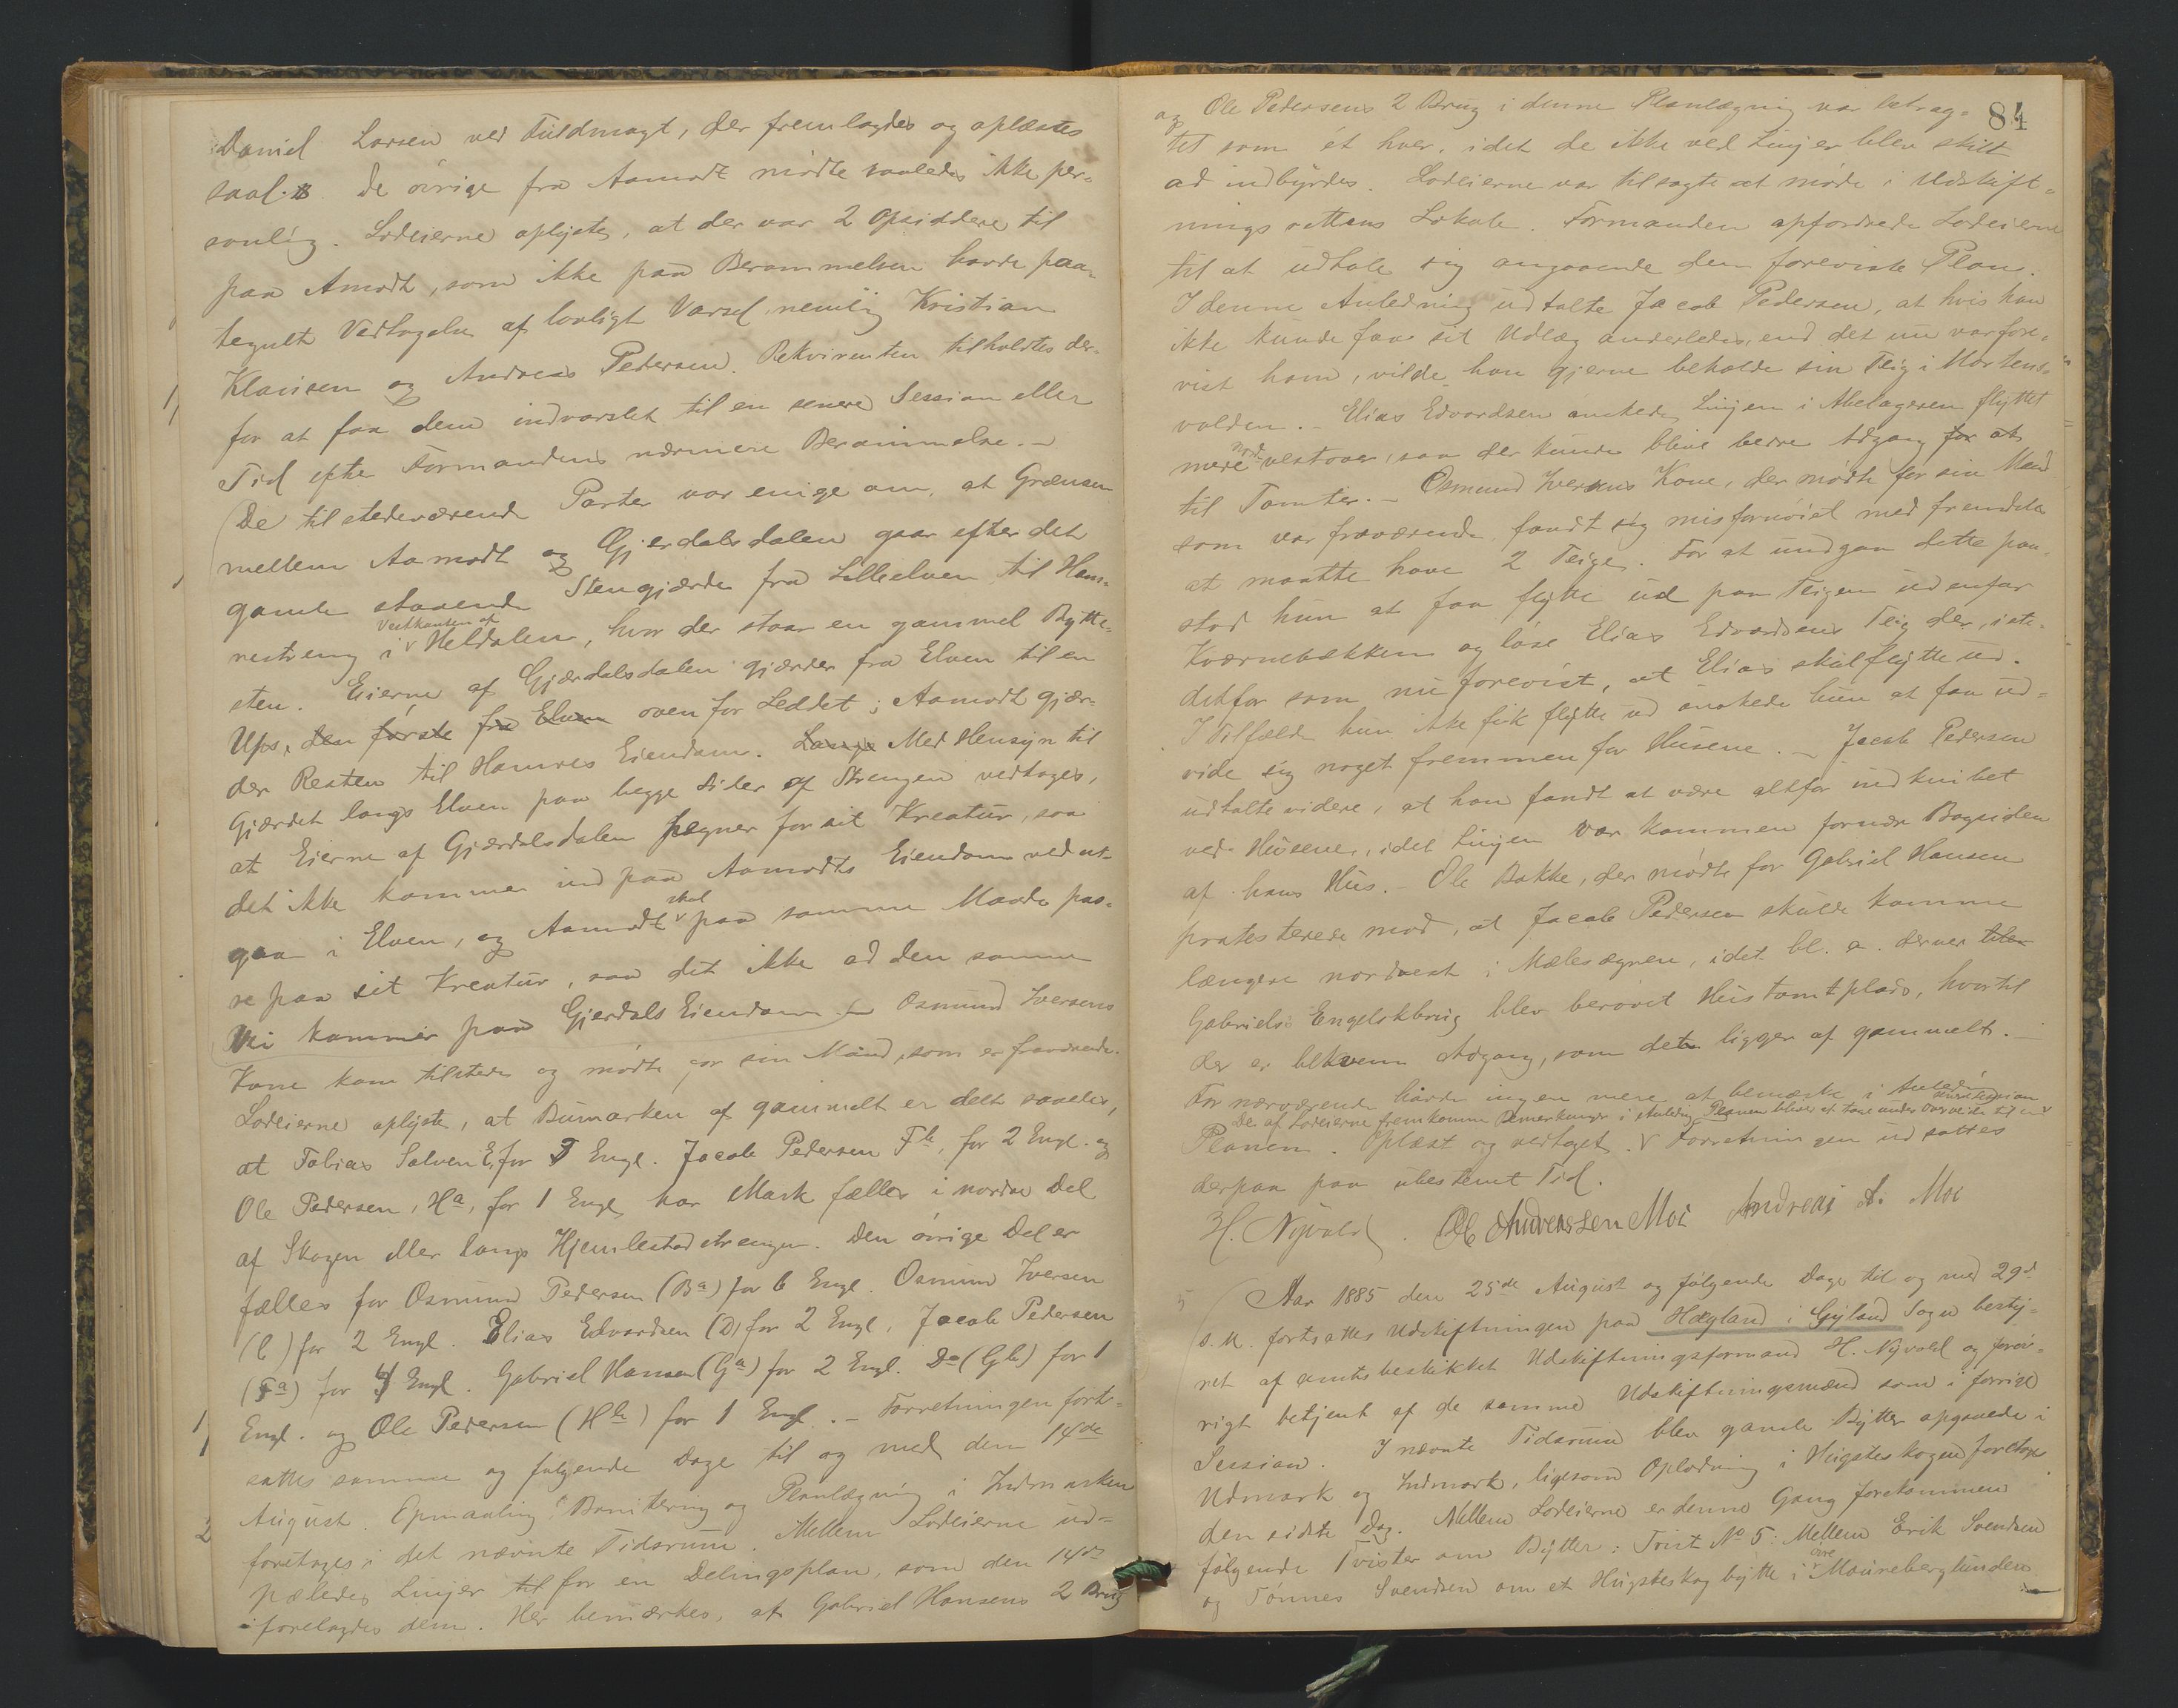 Daniel Larsen ved Fuldmagt, der fremlagdes og oplæstes
saal. De øvrige fra Aamodt mødte saaledes ikke per-
sonlig. Lodeierne oplyste, at der var 2 Opsiddere til
paa Amodt, som ikke paa Berammelsen havde paa-
tegnet Vedtagelse af lovligt Varsel nemlig Kristian
Klausen og Andreas Pedersen. Rekvirenten tilholdtes der-
for at faa dem indvarslet til en senere Session eller
Tid efter Formandens nærmere Berammelse. –
De tilstedeværende Parter var enige om, at Grændsen
mellem Aamodt og Gjerdalsdalen gaar efter det
gamle staaende Stengjærde fra Lilleelven til Ham-
restreng i Vestkanten af Heldalen, hvor der staar en gammel Bytte-
sten. Eierne af Gjærdalsdalen gjærder fra Elven til en
Ups, den første fra Elven oven for Leddet; Aamodt gjær-
der Resten til Hamres Eiendom. Langs Med Hensyn til
Gjærdet langs Elven paa begge Sider af Strengen vedtages,
at Eierne af Gjærdalsdalen hegner for sit Kreatur, saa
det ikke kommer ind paa Aamodts Eiendom ved at
gaa i Elven, og Aamodt skal paa samme Maade pas-
se paa sit Kreatur, saa det ikke ad den samme
Vei kommer paa Gjerdals Eiendom. – Osmund Iversens
Kone kom tilstede og mødte for sin Mand, som er fraværende.
Lodeierne oplyste, at Bumarken af gammelt er delt saaledes,
at Tobias Salven E, for 5 Engl. Jacob Pedersen Fb, for 2 Engl. og
Ole Pedersen, Ha, for 1 Engl har Mark fælles i nordre Del
af Skogen eller langs Hjemlestadstrengen. Den øvrige Del er
fælles for Osmund Pedersen (Ba) for 6 Engl. Osmund Iversen
(C) for 2 Engl. Elias Edvardsen (D) for 2 Engl, Jacob Pedersen
(Fa) for 4 Engl. Gabriel Hansen (Ga) for 2 Engl. Do (Gb) for 1
Engl. og Ole Pedersen (Hb) for 1 Engl. – Forretningen fort-
sattes samme og følgende Dage til og med den 14de
August. Opmaaling, Bonitering og Planlægning i Indmarken
foretoges i det nævnte Tidsrum. Mellem Lodeierne ud-
pæledes Linjer til for en Delingsplan, som den 14de
forelagdes dem. Her bemærkes, at Gabriel Hansens 2 Brug
84
og Ole Pedersens 2 Brug i denne Planlægning var betrag-
tet som ét hver, idet de ikke ved Linjer blev skilt
ad indbyrdes. Lodeierne var tilsagte at møde i Udskift-
ningsrettens Lokale. Formanden opfordrede Lodeierne
til at udtale sig angaaende den foreviste Plan.
I denne Anledning udtalte Jacob Pedersen, at hvis han
ikke kunde faa sit Udlæg anderledes, end det nu var fore-
vist ham, vilde han gjerne beholde sin Teig i Mortens-
volden. – Elias Edvardsen ønskede Linjen i Abelageren flyttet
mere nord-vestover, saa der kunde blive bedre Adgang for at
til Tomter. – Osmund Iversens Kone, der mødte for sin Mand
som var fraværende fandt sig misfornøiet med fremdeles
at maatte have 2 Teige. For at undgaa dette paa-
stod hun at faa flytte ud paa Teigen udenfor
Kværnebækken og løse Elias Edvardsens Teig der, iste-
detfor som nu forevist, at Elias skal flytte ud.
I Tilfælde hun ikke fik flytte ud ønskede hun at faa ud-
vide sig noget fremmen for Husene. – Jacob Pedersen
udtalte videre, at han fandt at være altfor indknibet
ved Husene, idet Linjen var kommen for nær Bagsiden
af hans Hus. – Ole Bakke, der mødte for Gabriel Hansen
protesterede mod, at Jacob Pedersen skulde komme
længere nordvest i Mælesageren, idet bl. a. derved blev
Gabriels Engelskbrug blev berøvet Hustomtplads, hvortil
der er bekvem Adgang, som det ligger af gammelt. –
For nærværende havde ingen mere at bemærke i Anledn.
De af Lodeierne fremkomne Bemærkninger i Anledn. Planen bliver at tage under Overveielse til
Planen. Oplæst og vedtaget. V Forretningen udsattes
derpaa paa ubestemt Tid.
H. Nyvold. Ole Andreassen Moi Andreas A. Moi
5 Aar 1885 den 25de August og følgende Dage til og med 29d
s. M. fortsattes Udskiftningen paa Hægland i Gyland Sogn besty-
ret af amtsbeskikket Udskiftningsformand H. Nyvold og forøv-
rigt betjent af de samme Udskiftningsmænd som i forrige
Session. I nævnte Tidsrum blev gamle Bytter opgaaede i
Udmark og Indmark, ligesom Oplodning i Hugsteskogen foretoges
den sidste Dag. Mellem Lodeierne er denne Gang forekommen
følgende Tvister om Bytter: Tvist No 5: Mellem Erik Svendsen
og Tønnes Svendsen om et Hugsteskogbytte i øvre Maureberglunden